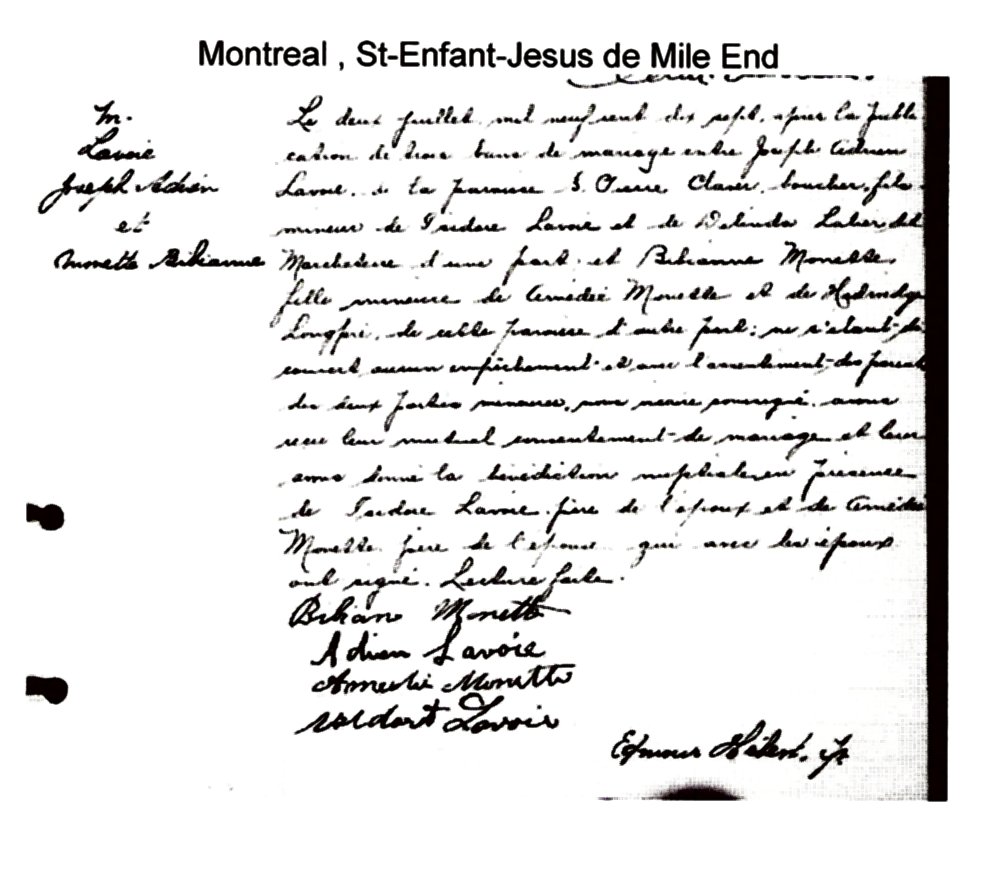 Montreal , St-Enfant-Jesus de Mile End
M.
Lavoie
Joseph Adrien
et
Monette Bibianne
Le deux juillet mil neuf cent dix sept, après la publi
cation de trois bans de mariage entre Joseph Adrien
Lavoie, de la paroisse S. Pierre Claver, boucher, fils
mineur de Isidore Lavoie et de
d'une part et Bibianne Monette
fille mineure de Amédée Monette et de
Longpré, de cette paroisse d'autre part; ne s'étant dé
couvert aucun empêchement et avec l'assentement des parents
des deux parties mineures, nous vicaire soussigné, avons
reçu leur mutuel consentement de mariage et leur
avons donné la bénédiction nuptiale en présence
de Isidore Lavoie père de l'époux et de Amédée
Monette père de l'épouse qui avec les époux
ont signé. Lecture faite.
Bibian Monette
Adrien Lavoie
Amédé Monette
Lavoie